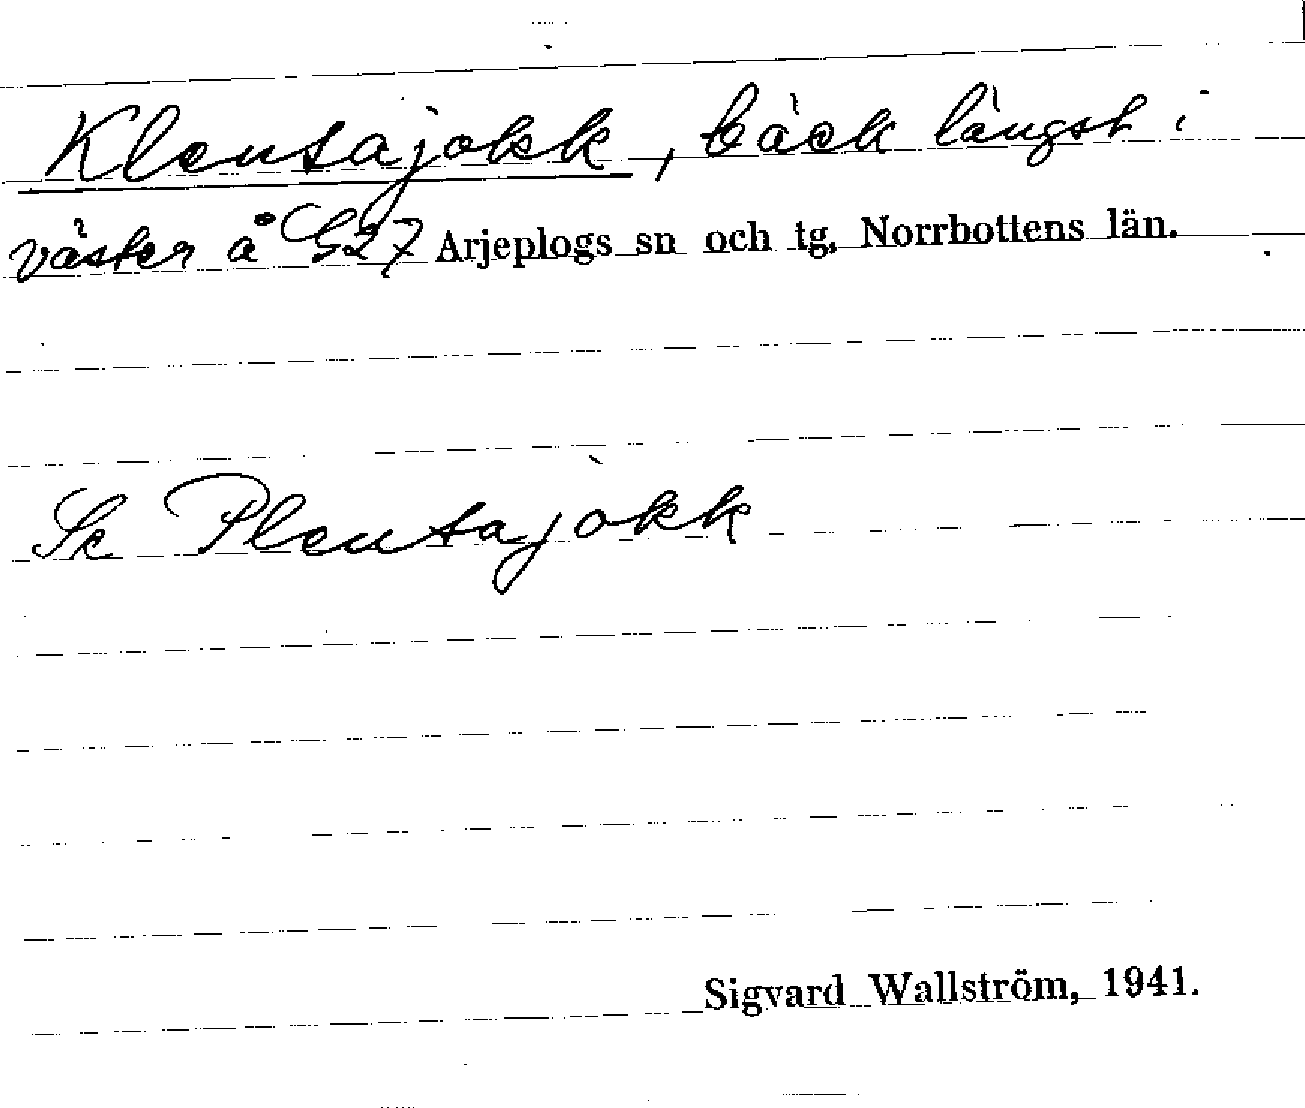 Klentajokk, bäck längst i
väster å G27 Arjeplogs sn och tg. Norrbottens län.
Se Plentajåkk
Sigvard Wallström, 1941.